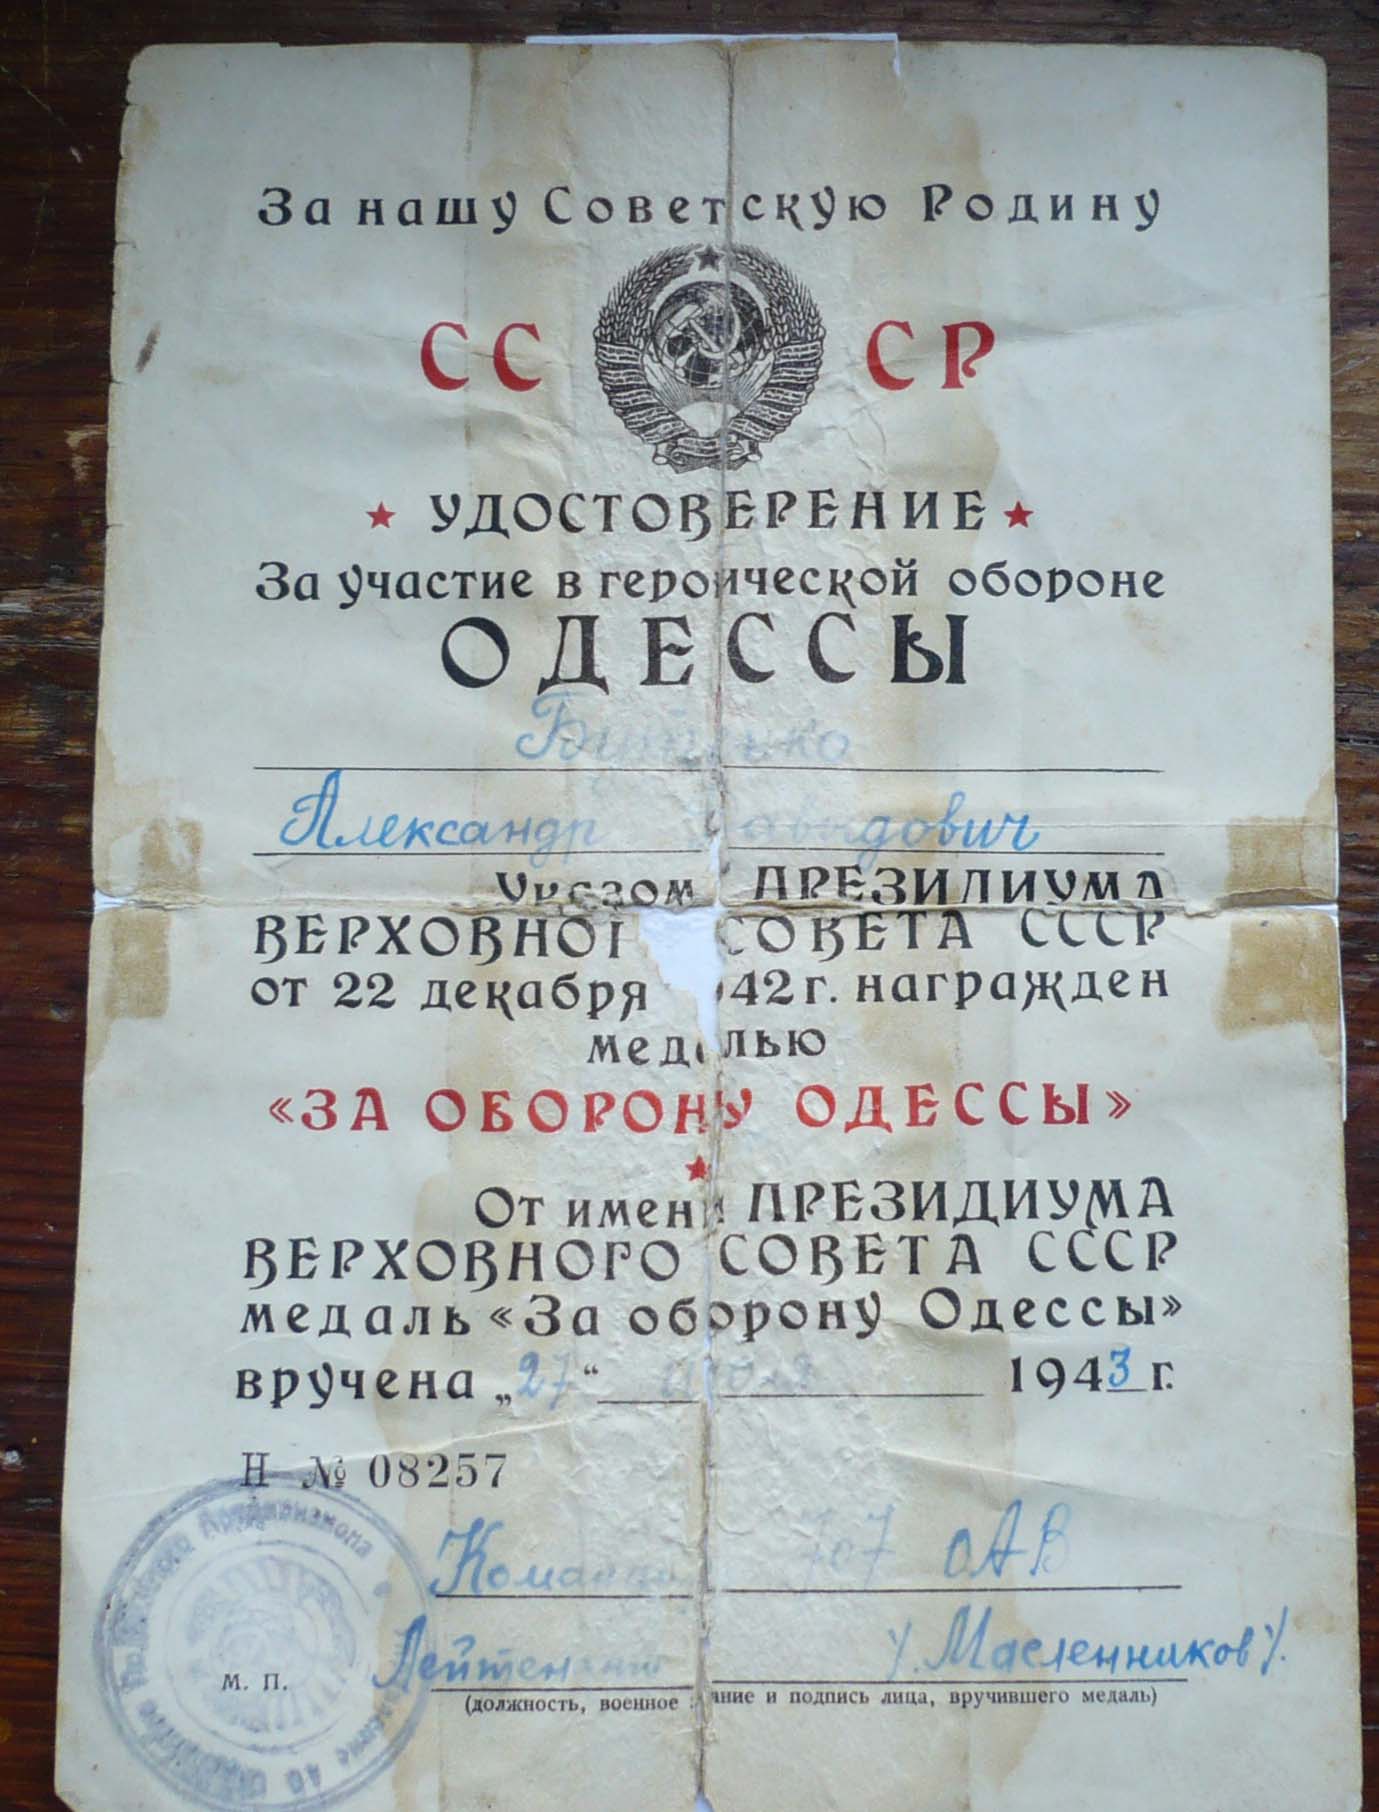 За нашу Советскую Родину
СС СР
УДОСТОВЕРЕНИЕ
За участие в героической обороне
ОДЕССЫ
Александр Давыдович
Указом ПРЕЗИДИУМА
ВЕРХОВНОГО СОВЕТА СССР
от 22 декабря 1942 г. награжден
медалью
«ЗА ОБОРОНУ ОДЕССЫ»
От имени ПРЕЗИДИУМА
ВЕРХОВНОГО СОВЕТА СССР
медаль «За оборону Одессы»
вручена „27“ июля 1943 г.
Н № 08257
Командир 707 оАВ
Лейтенант /Масленников/.
М. П.
(должность, военное звание и подпись лица, вручившего медаль)